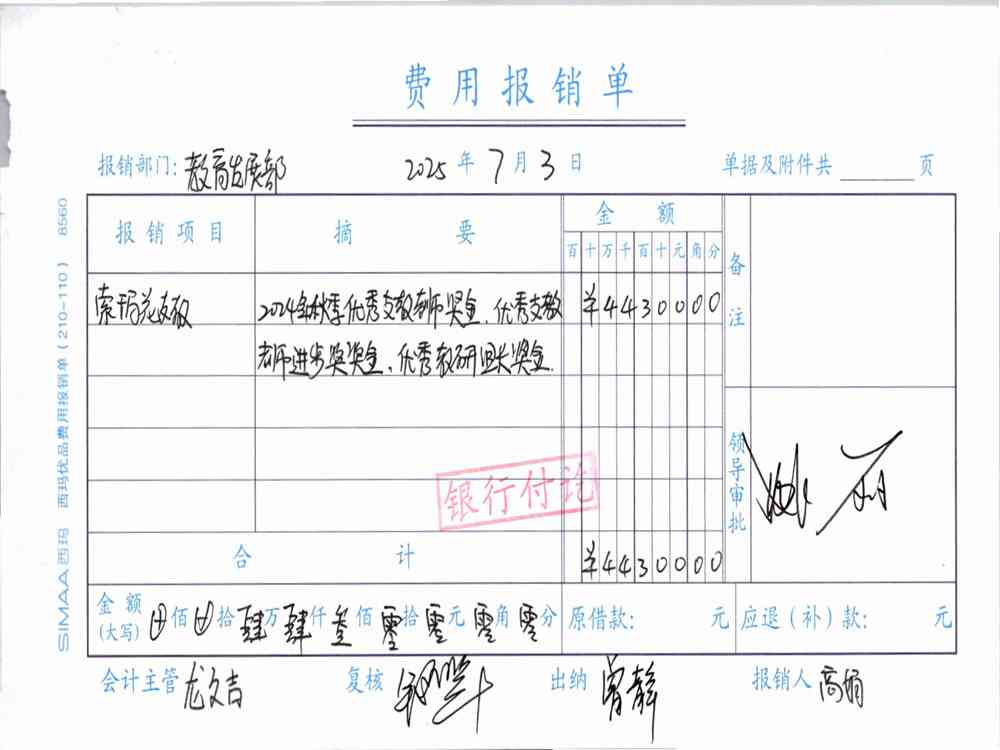 费用报销单
报销部门：教育发展部 2025年7月3日 单据及附件共 页
报销项目 摘要 金额 备注
百十万千百十元角分
2024年秋季优秀支教教师奖金、优秀支教 ¥4430000
老师进步奖奖金、优秀教研组长奖金.
银行付讫
领导审批
合计 ¥4430000
金额(大写) 佰 拾肆万肆仟叁佰零拾零元零角零分 原借款: 元 应退(补)款: 元
会计主管 龙文吉 复核 出纳 曾静 报销人 高娟
SIMAA西玛 西玛优品费用报销单(210-110) 8560